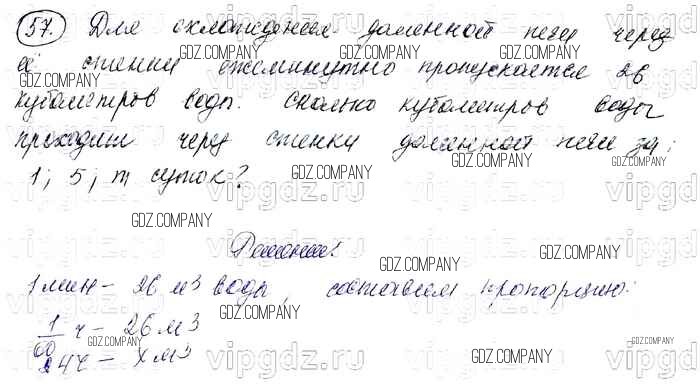 57. Для охлаждения доменной печи через
её стенки ежеминутно пропускается 26
кубометров воды. Сколько кубометров воды
проходит через стенки доменной печи за:
1; 5; m суток?
Решение:
1 мин - 26 м³ воды, составляем пропорцию:
1/60 ч - 26 м³
24ч - x м³